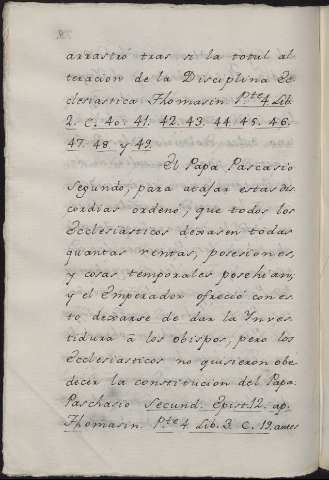 8.
arrastró tras si la total al
teracion de la Disciplina Ec
clesiastica Thomasin. Pte 4 Lib.
2. C. 40. 41. 42. 43. 44. 45. 46.
47. 48 y 49.
El Papa Pascasio
Segundo, para atajar estas dis
cordias ordenó, que todos los
Ecclesiasticos dexasen todas
quantas rentas, posesiones,
y cosas temporales posehian,
y el Emperador ofreció con es
to dexarse de dar la Ynves
tidura à los obispos, pero los
Ecclesiasticos no quisieron obe
decer la constitucion del Papa.
Paschasio Secund. Epist. 12. ap.
Thomasin. Pte 4. Lib. 3. C. 19. antes